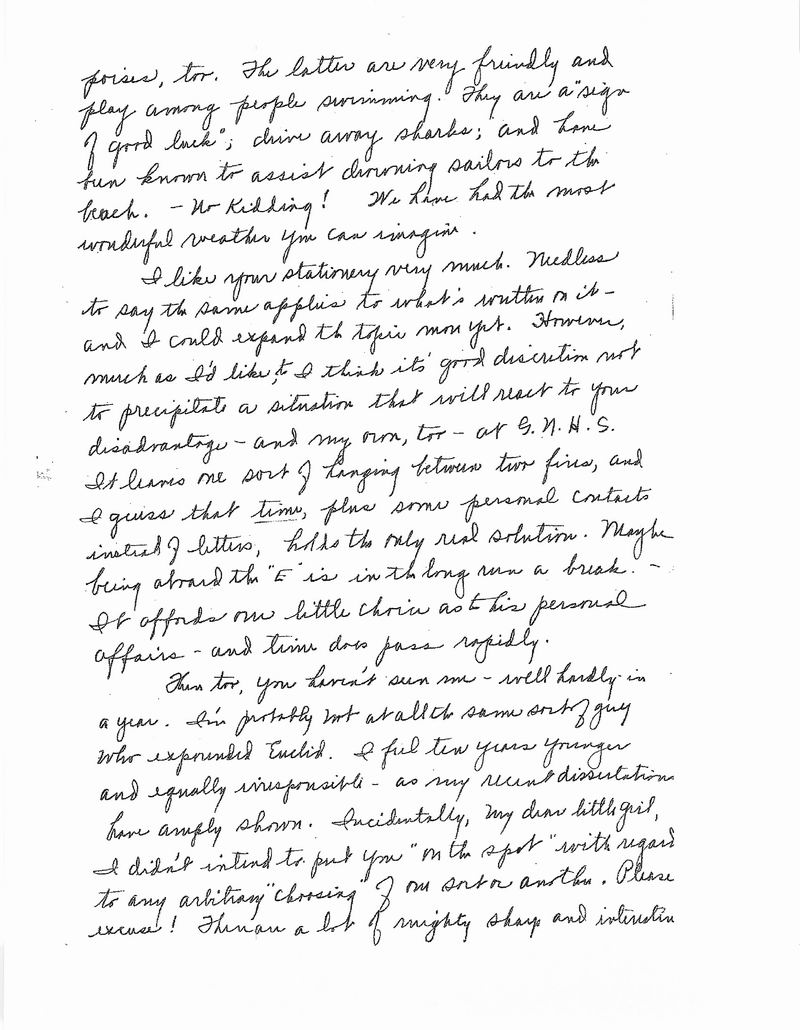 poises, too. The latter are very friendly and
play among people swimming. They are a "sign
of good luck"; drive away sharks; and have
been known to assist drowning sailors to the
beach. - No Kidding! We have had the most
wonderful weather you can imagine.
I like your stationery very much. Needless
to say the same applies to what's written on it -
and I could expand the topic more yet. However,
much as I'd like to I think its' good discretion not
to precipitate a situation that will react to your
disadvantage - and my own, too - at G.N.H.S.
It leaves one sort of hanging between two fires, and
I guess that time, plus some personal contacts
instead of letters, holds the only real solution. Maybe
being aboard the "E" is in the long run a break. -
It affords one little choice as to his personal
affairs - and time does pass rapidly.
Then too, you haven't seen me - well hardly - in
a year. I'm probably not at all the same sort of guy
who expounded Euclid. I feel ten years younger
and equally irresponsible - as my recent dissertations
have amply shown. Incidentally, my dear little girl,
I didn't intend to put you "on the spot" with regard
to any arbitrary "choosing" of one sort or another. Please
excuse! There are a lot of mighty sharp and interestin